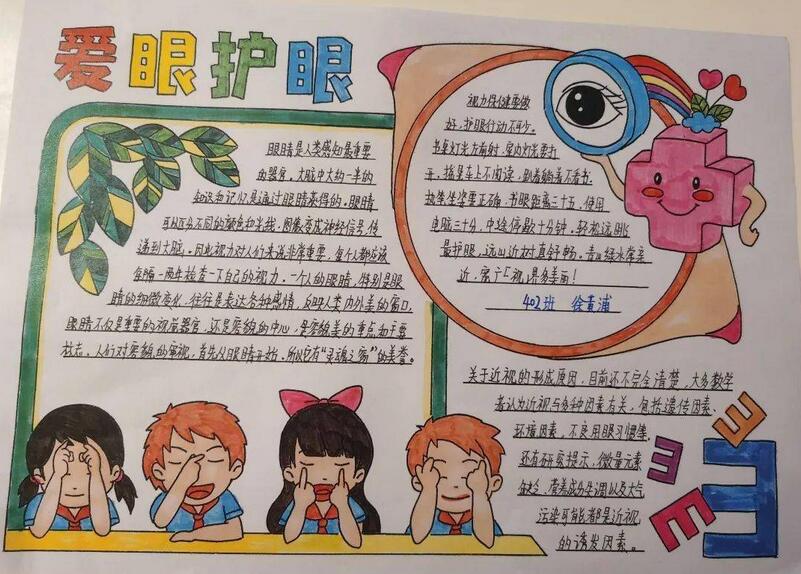 爱眼护眼
眼睛是人类感知最重要
的器官。大脑中大约一半的
知识和记忆是通过眼睛获得的。眼睛
可以区分不同的颜色和光线。图像变成神经信号,传
递到大脑。因此视力对人们来说非常重要,每个人都应该
每隔一两年检查一下自己的视力。一个人的眼睛,特别是眼
睛的细微变化,往往是表达各种感情,反映人类内外美的窗口,
眼睛不仅是重要的视觉器官,还是容貌的中心,是容貌美的重点和主要
标志。人们对容貌的审视,首先从眼睛开始。所以它有“灵魂之窗”的美誉。
视力保健要做
好,护眼行动不可少。
书桌灯光左前射,室内灯光要打
开。摇晃车上不阅读,别躺躺看不看书。
执笔坐姿要正确,书眼距离三十五。使用
电脑三十分,中途停歇十分钟。轻松远眺
最护眼,远山近树真舒畅。青山绿水常亲
近,宽广视界多美丽!
402班 徐黄浦
关于近视的形成原因,目前还不完全清楚,大多数学
者认为近视与多种因素有关,包括遗传因素、
环境因素、不良用眼习惯等。
还有研究提示,微量元素
、营养成分失调以及大气
污染可能都是近视
的诱发因素。